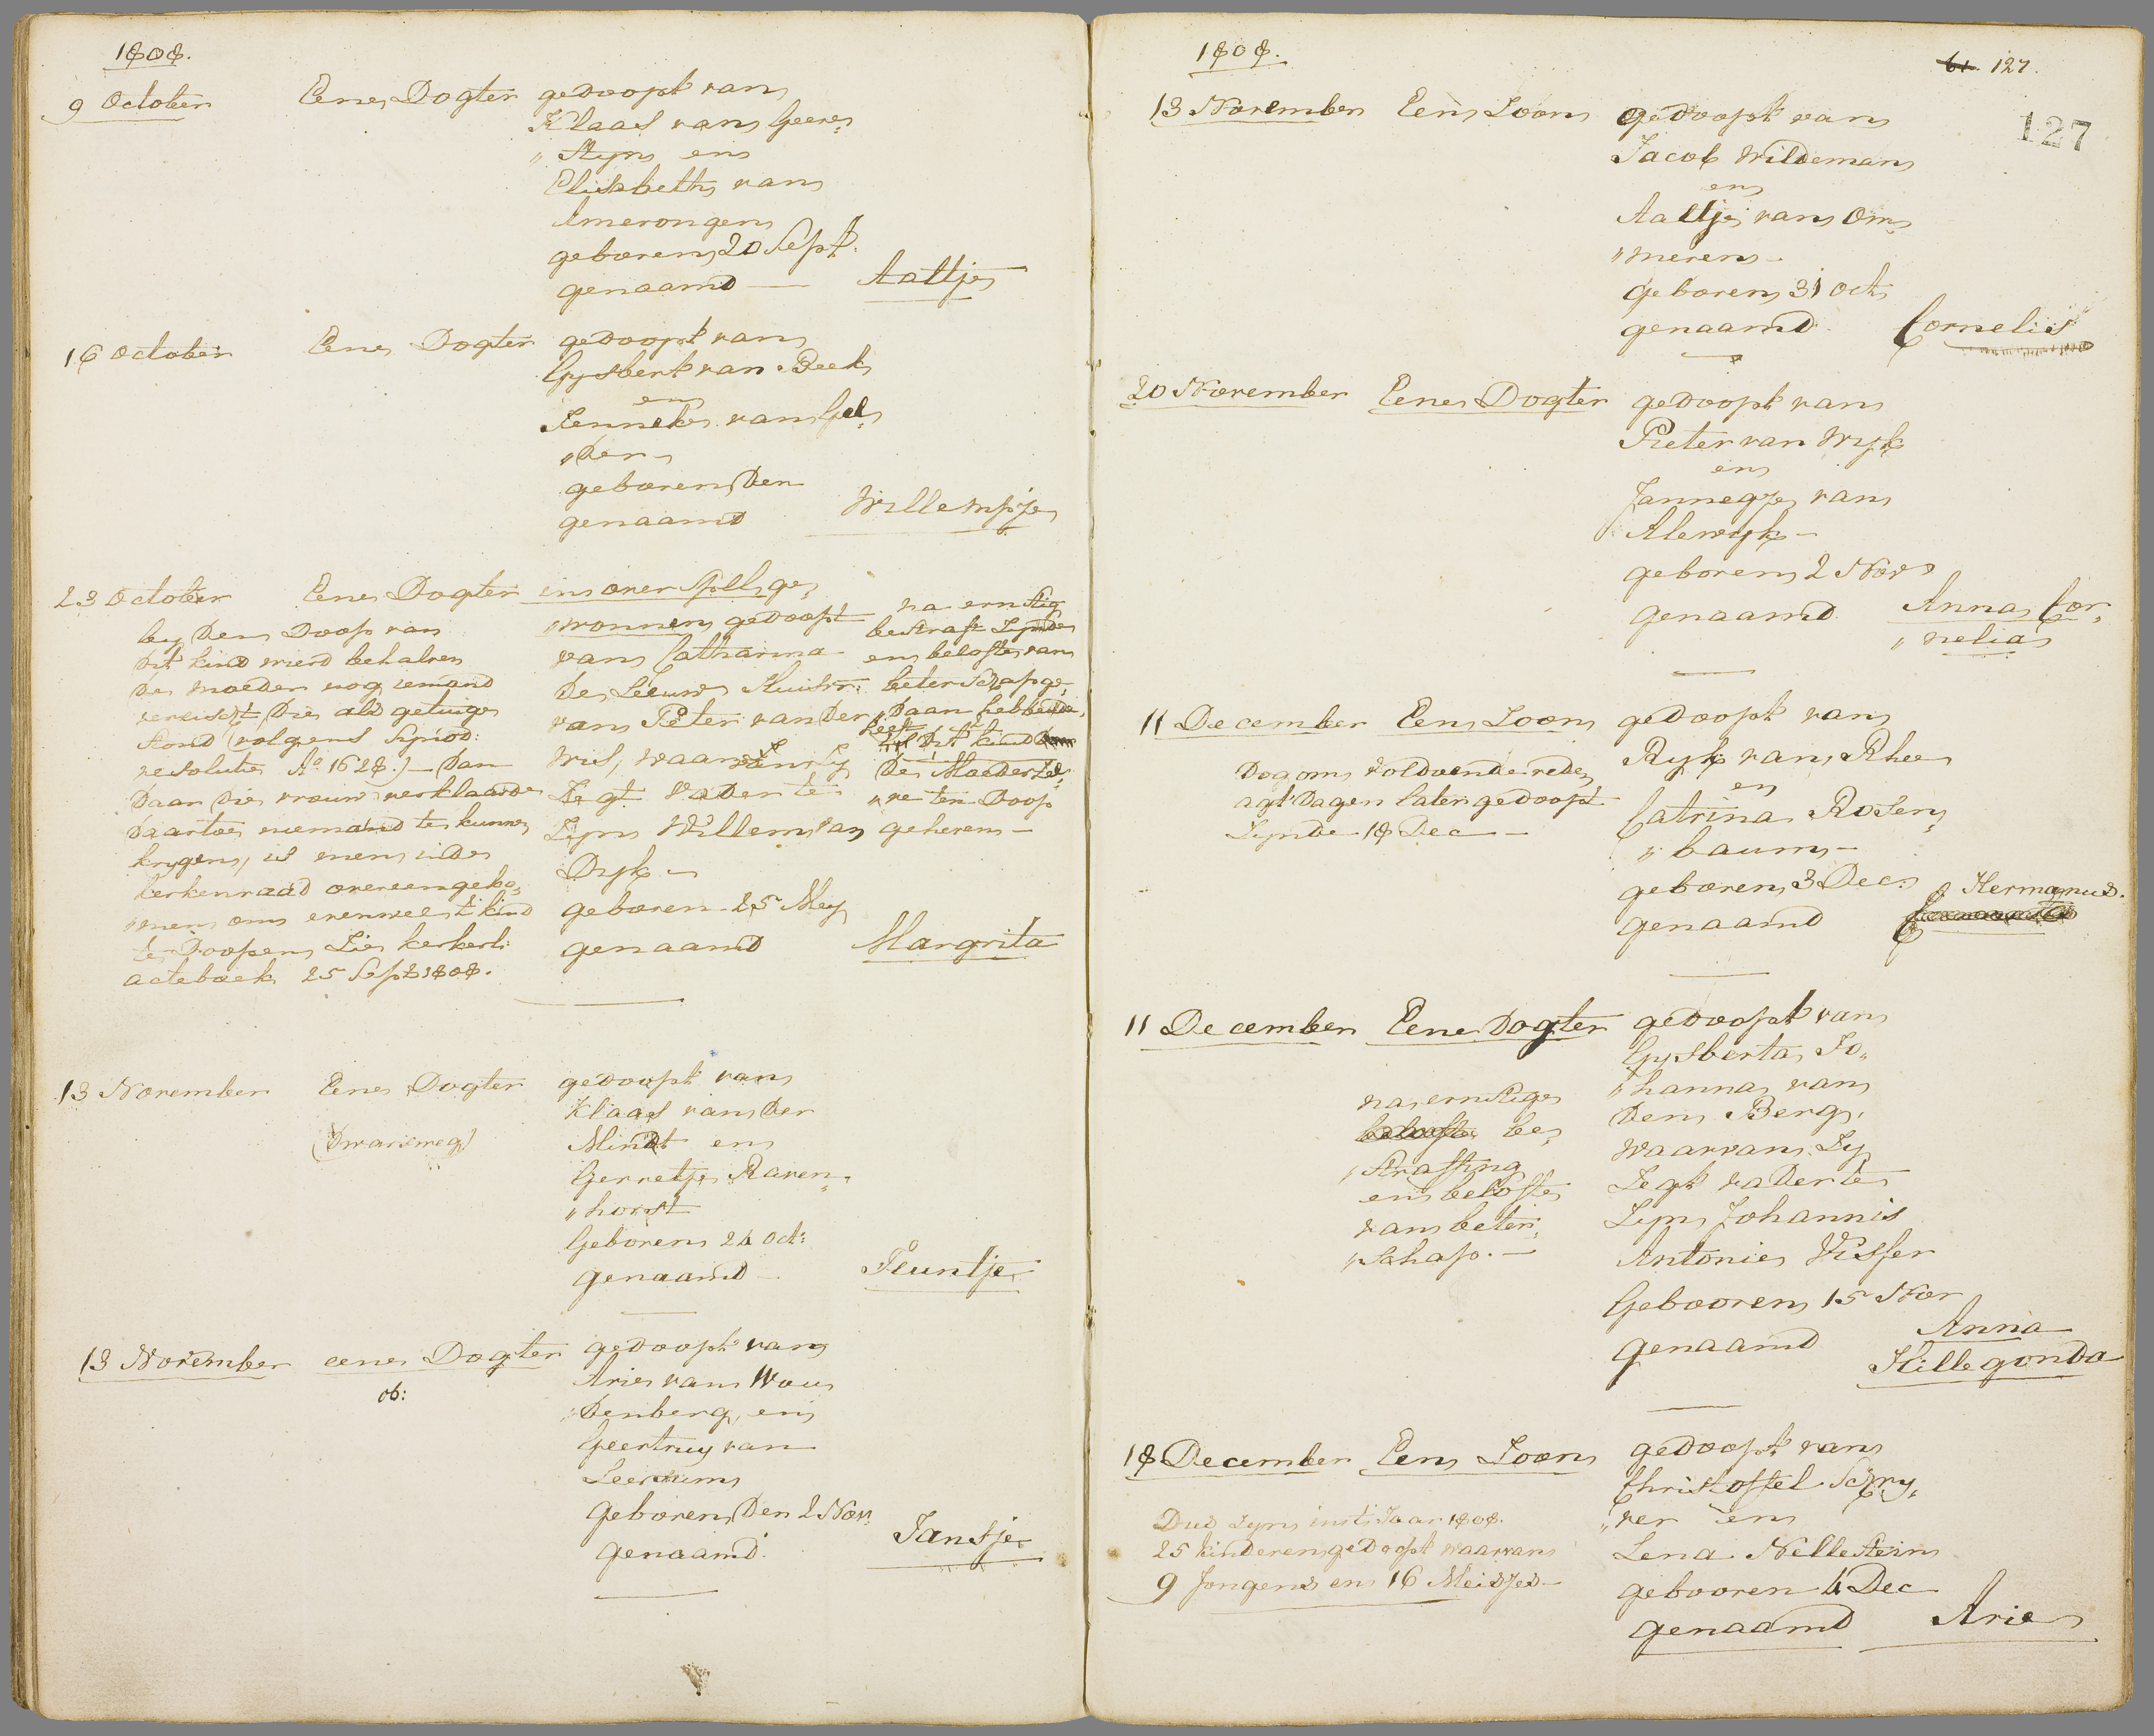 1808.
9 October Eene Dogter gedoopt van
Klaas van Geere„
„steyn en
Elisabeth van
Amerongen
geboren 20 Sept.
genaamd — Aaltje
16 October Eene Dogter gedoopt van
Gysbert van Beek
en
Jenneke van Gel„
„der —
geboren den
genaamd Willempje
23 October Eene Dogter in overspel ge„
„wonnen gedoopt
van Catharina
de Leeuw Huisvr:
van Peter van der
Wis, waarvan sy
zegt vader te
zyn Willem van
Dyk —
geboren 25 Mey
genaamd Margrita
na ernstig
bestraft zynde
en belofte van
beterschap ge„
„daan hebbende,
heeft
dit kind
de Moeder zel„
„ve ten Doop
geheven —
by den Doop van
dit kind wierd behalven
de moeder nog iemand
vereischt, die als getuige
stond (volgens Synod:
resolutie Aº 1628.) — Dan
daar die vrouw verklaarde
daartoe niemand te kunnen
krygen, is men in de
kerkenraad overeengeko„
„men om evenwel 't kind
te Doopen, Zie kerkerl:
acteboek 25 Sept 1808.
13 November Eene Dogter gedoopt van
(Dwarsweg)
Klaas van der
Mindt en
Gerretje Raven„
„horst
Geboren 24 Oct:
genaamd — Teuntje
13 November eene Dogter gedoopt van
ob:
Arie van Wou„
„denberg, en
Geertruy van
Leersum
geboren den 2 Nov.
genaamd Jansje
1808.
61. 127.
127
13 November Een Zoon gedoopt van
Jacob Wildeman
en
Aaltje van Om„
„meren —
geboren 31 Oct
genaamd Cornelis
20 November Eene Dogter gedoopt van
Pieter van Wyk
en
Jannegje van
Alewyk —
geboren 2 Nov
genaamd Anna Cor„
„nelia
11 December Een Zoon gedoopt van
Ryk van Rhee
en
Catrina Rosen„
„baum —
geboren 3 Dec:
genaamd Hermanus.
Dog om voldoende reden
agt dagen later gedoopt
Zynde 18 Dec —
11 December Eene Dogter gedoopt van
Gysberta Jo„
„hanna van
den Berg,
waarvan zy
zegt vader te
zyn Johannis
Antonie Visser
Gebooren 15 Nov
genaamd Anna
Hillegonda
na ernstige
belofte be„
„straffing
en belofte
van beter„
„schap. —
18 December Een Zoon gedoopt van
Christoffel Schry„
„ver en
Lena Nellestein
gebooren 4 Dec
genaamd Arie
Dus zyn in 't Jaar 1808.
25 kinderen gedoopt waarvan
9 Jongens en 16 Meisjes —